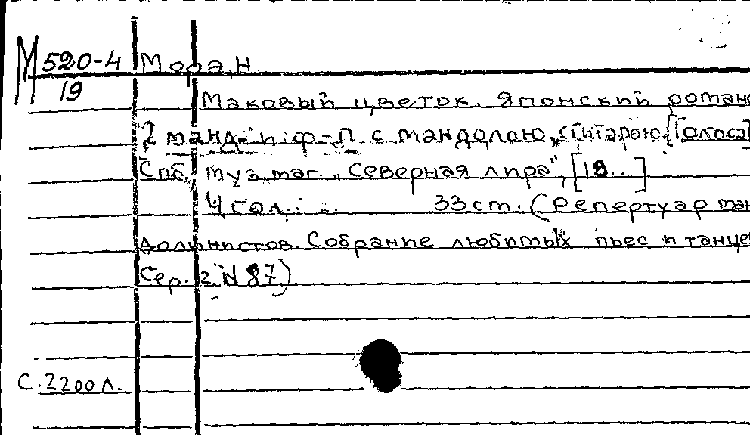 М 520-4 Мора, Н
19
Маковый цветок. Японский романс
2 манд. и ф-п. с мандолою, гитарою. [Голоса]
Спб, муз. маг. „Северная лира", [18..]
4 гол. 33 ст. (Репертуар ман
долинистов. Собрание любимых пьес и танце
Сер. 2 N 87)
С. 2200 л.